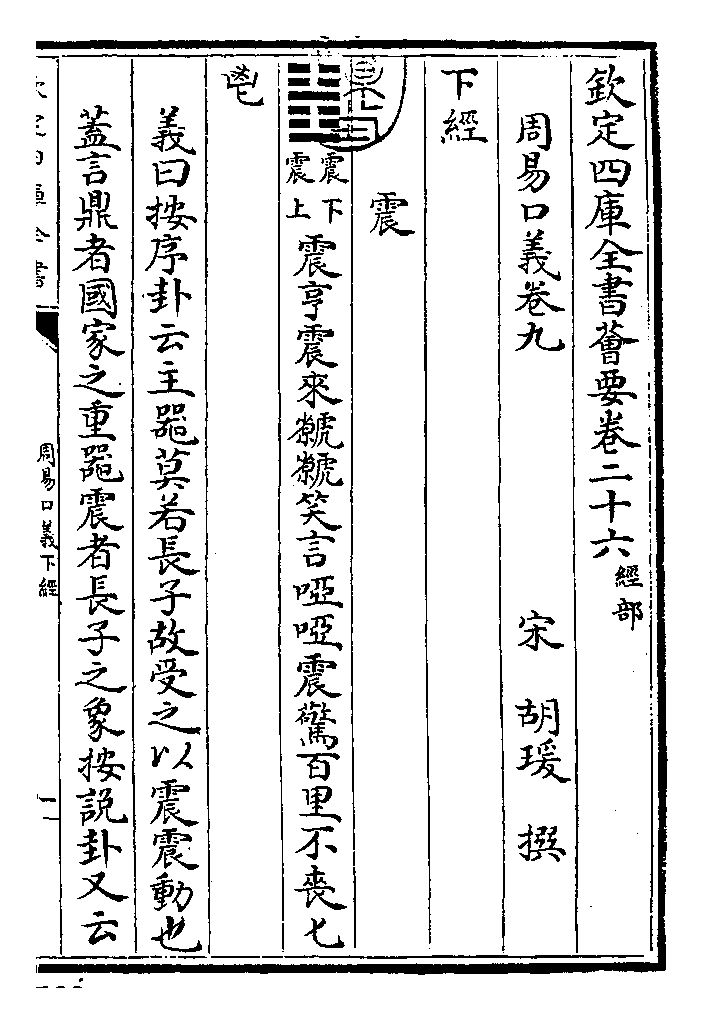 欽定四庫全書薈要卷二十六 經部
周易口義卷九 宋 胡瑗 撰
下經
震
震下震上 震亨震來虩虩笑言啞啞震驚百里不喪匕
鬯
義曰按序卦云主器莫若長子故受之以震震動也
蓋言鼎者國家之重器震者長子之象按說卦又云
周易口義下經